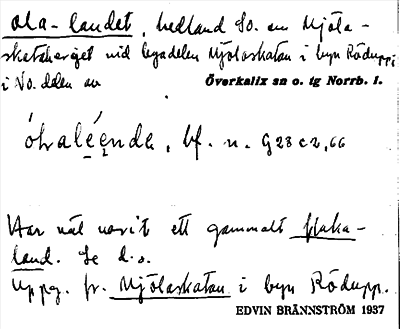 Ola-landet, hedland So. om Mjöla-
skataberget vid bydelen Mjölaskatan i byn Rödupp
i No. delen av Överkalix sn o. tg Norrb. l.
bf. n. G 28 c 2, 66
Har väl varit ett gammalt flaka-
land. Se d. o.
Uppg. fr. Mjölaskatan i byn Rödupp.
EDVIN BRÄNNSTRÖM 1937